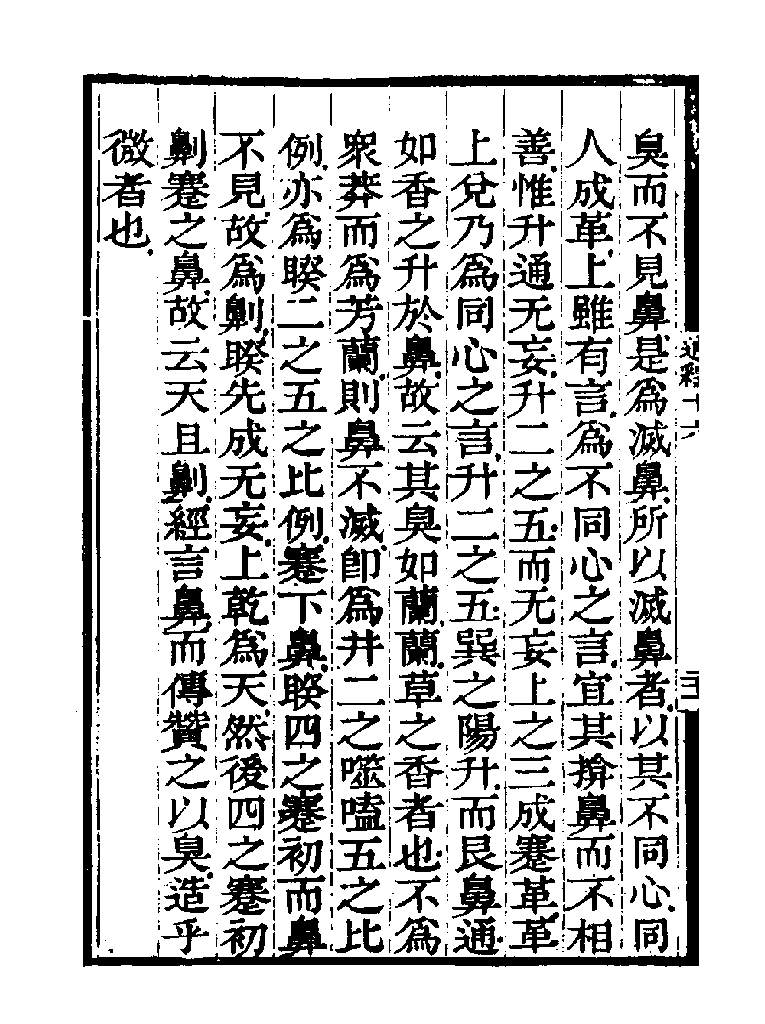 臭而不見鼻是爲滅鼻所以滅鼻者以其不同心同
人成革上雖有言爲不同心之言宜其揜鼻而不相
善惟升通无妄升二之五而无妄上之三成蹇革革
上兌乃爲同心之言升二之五巽之陽升而艮鼻通
如香之升於鼻故云其臭如蘭蘭草之香者也不爲
衆莽而爲芳蘭則鼻不滅卽爲井二之噬嗑五之比
例亦爲睽二之五之比例蹇下鼻睽四之蹇初而鼻
不見故爲劓睽先成无妄上乾爲天然後四之蹇初
劓蹇之鼻故云天且劓經言鼻而傳贊之以臭造乎
微者也
通釋十六